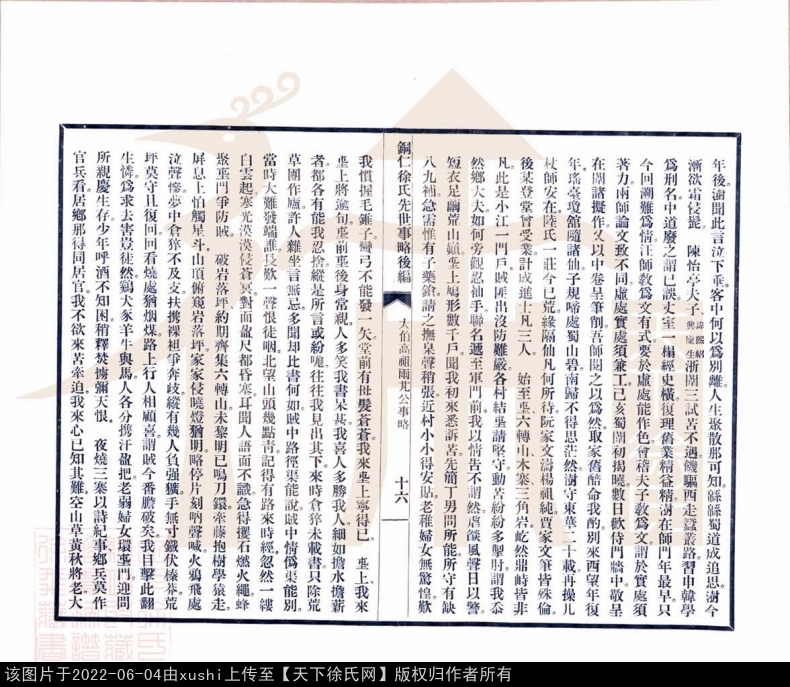 年後澍聞此言泣下乘客中何以為別離人生聚散那可知緜緜蜀道成追思澍今
漸欲霜侵髭 陳怡亭夫子諱熙紹興庠生浙闈三試苦不遇饑驅西走蠶叢路習申韓學
為刑名中道廢之謂已誤丈室一編經史橫復理舊業精益精澍在師門年最早只
今回溯難為情汪師教為文有式要於虛處能作色會稽夫子教為文謂於實處須
著力兩師論文致不同虛處實處須兼工己亥蜀闈初揭曉數日歡侍門牆中敬呈
在闈諸擬作又以中卷呈筆削吾師閱之以為然取家舊醅命我酌別來西望年復
年瑤臺瓊舘隨諸仙子規啼處蜀山碧南歸不得思茫然澍守東華二十載再操几
杖師安在陸氏一莊今已荒緣隔仙凡何所待阮家文濤楊祖純賈家文筆皆殊倫
後某登堂曾受業計成進士凡三人 始至垔六轉山木寨三角岩屹然鼎峙皆非
凡此是小江一門戶賊匪出沒防難嚴各村結垔請堅守動苦紛紛多掣肘謂我忝
然鄉大夫如何旁觀忍袖手聯名遞至軍門前我以情告不謂然虐燄風聲日以警
短衣足繭荒山巔垔上鳩形數千戶聞我初來悉訴苦先簡丁男問所能所守有缺
八九補急需惟有子藥鎗請之撫臬聲稍張近村小小得安貼老稚婦女無驚惶歎
銅仁徐氏先世事略後編 大伯高祖雨芃公事略 十六
我慣握毛錐子彎弓不能發一矢堂前有批髮蒼蒼我來垔上寧得已 垔上我來
垔上將逾旬垔前垔後身常親人多笑我書呆甚我喜人多勝我人細如擔水擔薪
者都各有能我忍捨縱是所言或紛呶往往我見出其下來時倉猝未載書只除荒
草團作廬許人雜坐言無忌多聞却比書何如賊中路徑渠能說賊中情僞渠能別
當時大難發端誰長歎一聲恨徒咽北望山頭幾點靑記得有路來時經忽然一縷
白雲起寒光漠漠侵蒼冥對面盈尺都昏塞耳聞人語面不識急得攫石燃火繩蜂
聚垔門爭防賊 破岩落坪約期齊集六轉山未黎明已鳴刀鐶牽藤抱樹學猿走
屏息上怕觸星斗山頂俯窺岩落坪家家侵曉燈猶明略停片刻吶聲喊火鴉飛處
泣聲慘夢中倉猝不及支扶攜裸袒爭奔歧縱有幾人負强獷手無寸鐵伏榛莽荒
坪莫守且復回回看燒處猶烟煤路上行人相顧喜謂賊今番膽破矣我目擊此翻
生憐為求去害豈徒然鷄犬豕羊牛與馬人各分携汗盈把老弱婦女環垔門迎問
所親慶生存少年呼酒不知困稍釋焚擄彌天恨 夜燒三寨以詩紀事鄉兵莫作
官兵看居鄉那得同居官我不欲來苦牽迫我來心已知其難空山草黃秋將老大
该图片于2022-06-04由xushi上传至【天下徐氏网】版权归作者所有